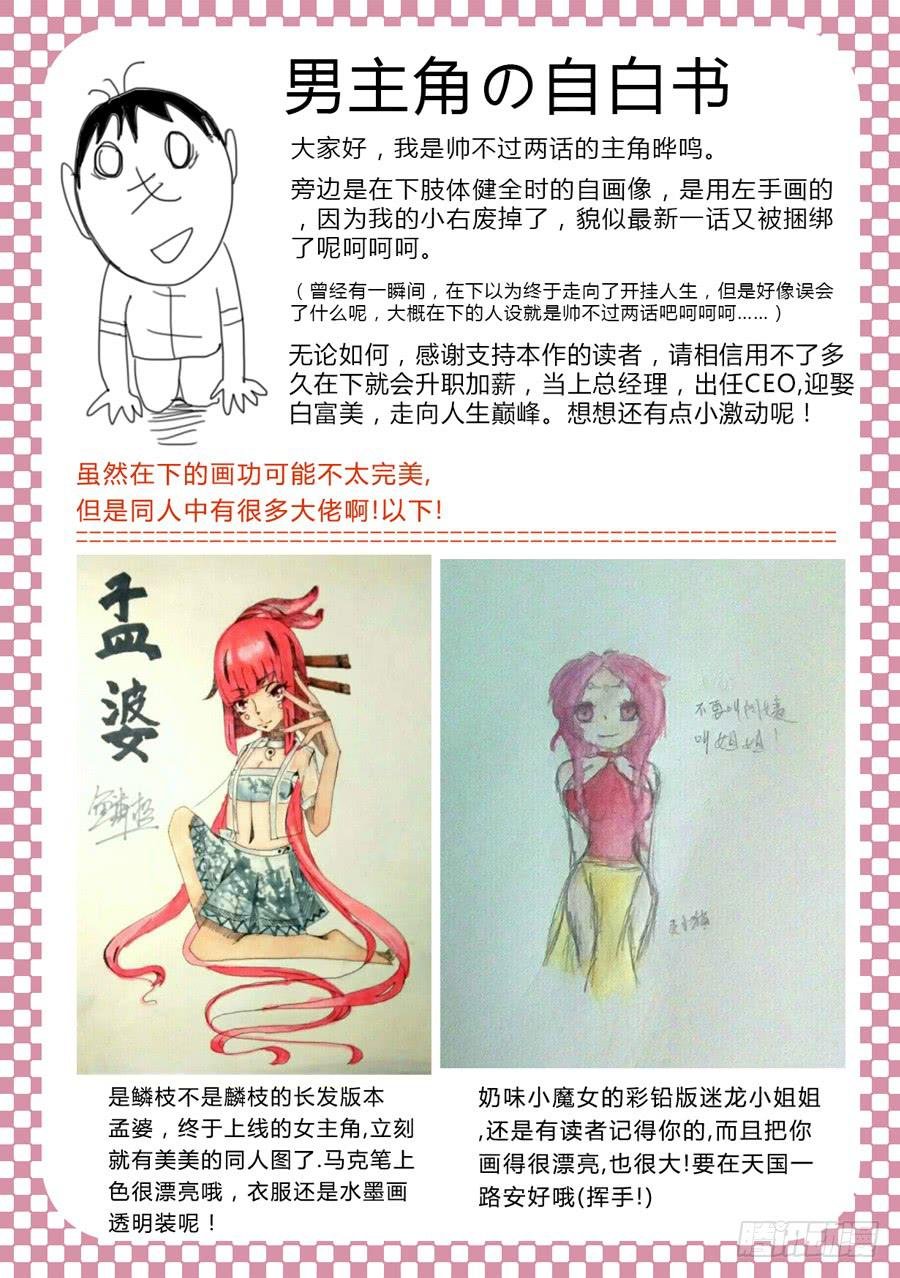 男主角の自白书
大家好，我是帅不过两话的主角晔鸣。
旁边是在下肢体健全时的自画像，是用左手画的
，因为我的小右废掉了，貌似最新一话又被捆绑
了呢呵呵呵。
（曾经有一瞬间，在下以为终于走向了开挂人生，但是好像误会
了什么呢，大概在下的人设就是帅不过两话吧呵呵呵……）
无论如何，感谢支持本作的读者，请相信用不了多
久在下就会升职加薪，当上总经理，出任CEO,迎娶
白富美，走向人生巅峰。想想还有点小激动呢！
虽然在下的画功可能不太完美,
但是同人中有很多大佬啊!以下!
孟婆
鳞枝
不要叫阿姨
叫姐姐！
是鳞枝不是麟枝的长发版本
孟婆，终于上线的女主角,立刻
就有美美的同人图了.马克笔上
色很漂亮哦，衣服还是水墨画
透明装呢！
奶味小魔女的彩铅版迷龙小姐姐
,还是有读者记得你的,而且把你
画得很漂亮,也很大!要在天国一
路安好哦(挥手!)
腾讯动漫